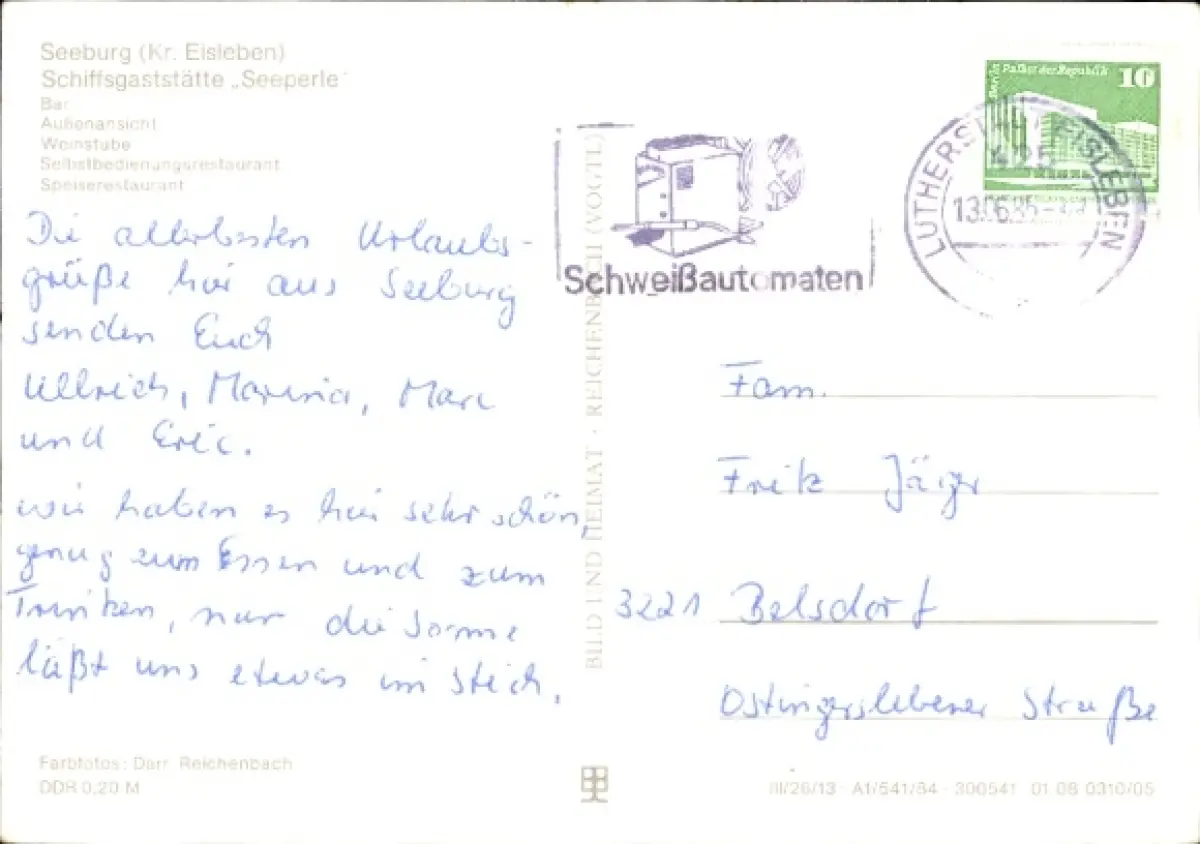 Seeburg (Kr. Eisleben)
Schiffsgaststätte „Seeperle"
Bar
Außenansicht
Weinstube
Selbstbedienungsrestaurant
Speiserestaurant
Die allerbesten Urlaubs-
grüße hier aus Seeburg
senden Euch
Ullrich, Marina, Marc
und Eric.
wir haben es hier sehr schön,
genug zum Essen und zum
Trinken, nur die Sonne
läßt uns etwas im Stich.
Farbfotos: Darr, Reichenbach
DDR 0,20 M
BILD UND HEIMAT · REICHENBACH (VOGTL)
Schweißautomaten
Palast der Republik 10
LUTHERSTADT EISLEBEN
425
13.06.85
Fam.
Fritz Jäger
3221 Belsdorf
Ostingerslebener Straße
III/26/13 · A1/541/84 · 300541 01 08 0310/05